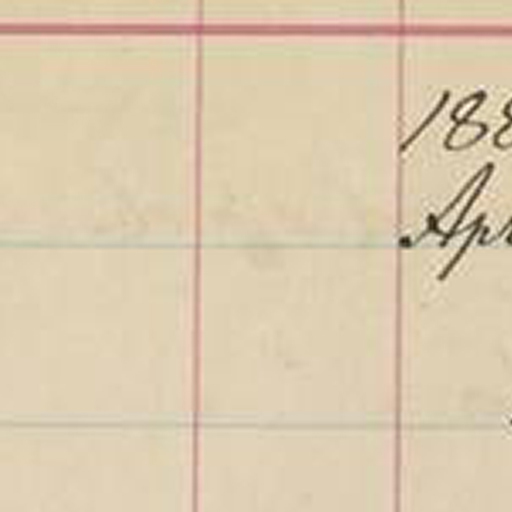 188
Apr